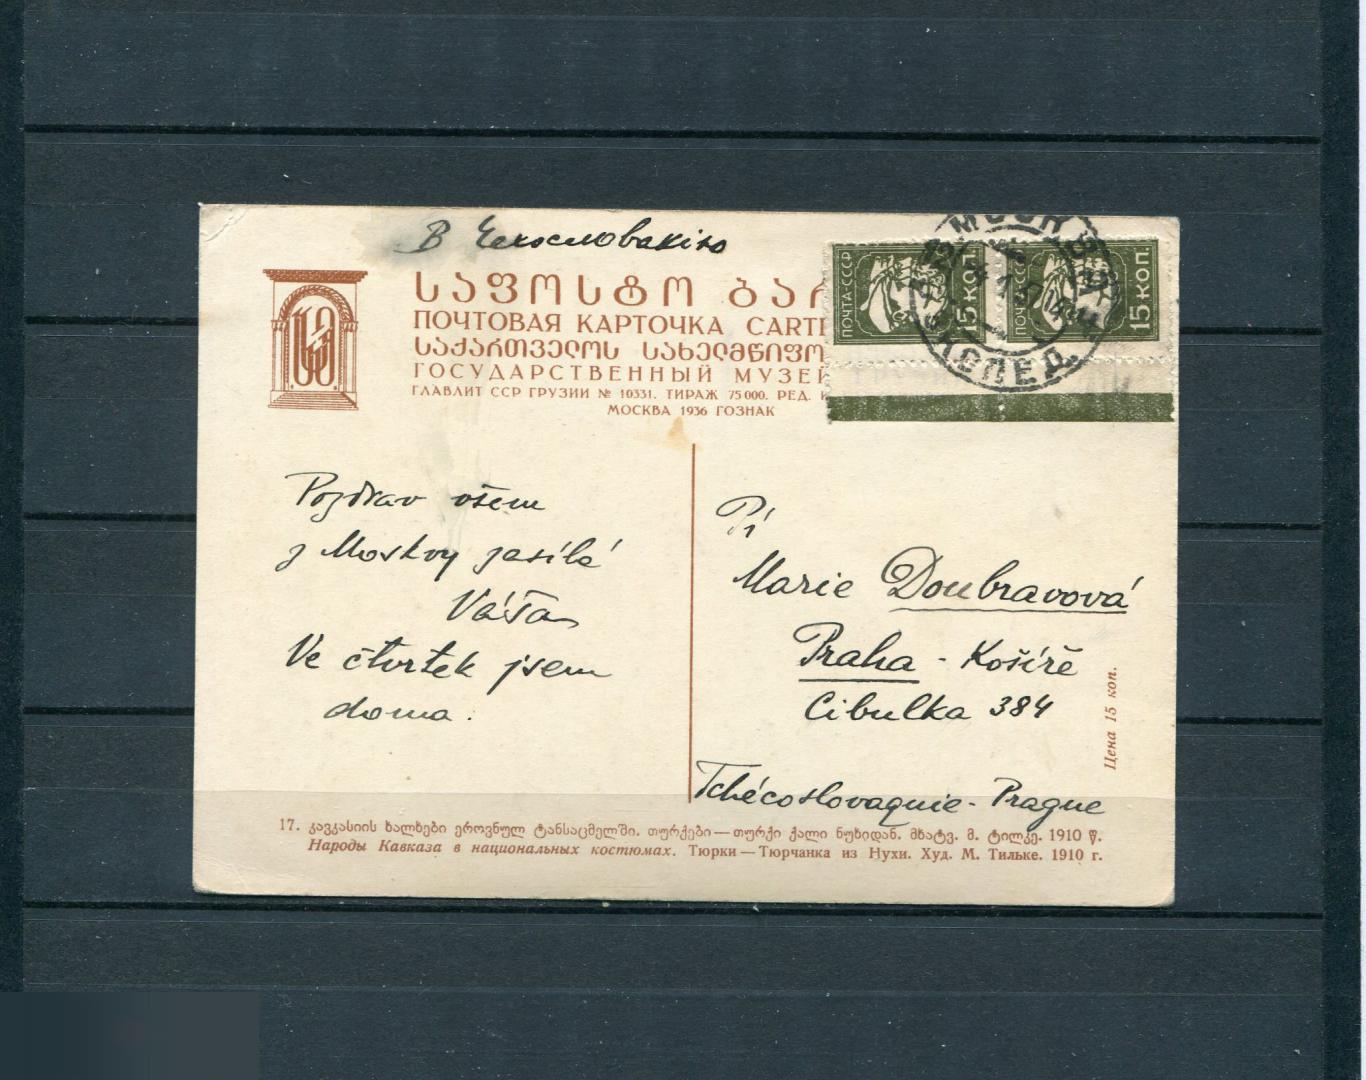 В Чехословакію
ᲡᲐᲤᲝᲡᲢᲝ ᲑᲐᲠ
ПОЧТОВАЯ КАРТОЧКА CARTE
ᲡᲐᲥᲐᲠᲗᲕᲔᲚᲝᲡ ᲡᲐᲮᲔᲚᲛᲬᲘᲤᲝ
ГОСУДАРСТВЕННЫЙ МУЗЕЙ
ГЛАВЛИТ ССР ГРУЗИИ № 10331. ТИРАЖ 75000. РЕД.
МОСКВА 1936 ГОЗНАК
ПОЧТА-СССР 15 КОП.
ПОЧТА-СССР 15 КОП.
МОСКВА
ЭКСПЕД.
Pozdrav všem
z Moskvy zasílá
Váša
Ve čtvrtek jsem
doma.
Pí
Marie Doubravová
Praha - Košíře
Cibulka 384
Tchécoslovaquie - Prague
Цена 15 коп.
17. კავკასიის ხალხები ეროვნულ ტანსაცმელში. თურქები — თურქი ქალი ნუხიდან. მხატვ. მ. ტილკე. 1910 წ.
Народы Кавказа в национальных костюмах. Тюрки — Тюрчанка из Нухи. Худ. М. Тильке. 1910 г.